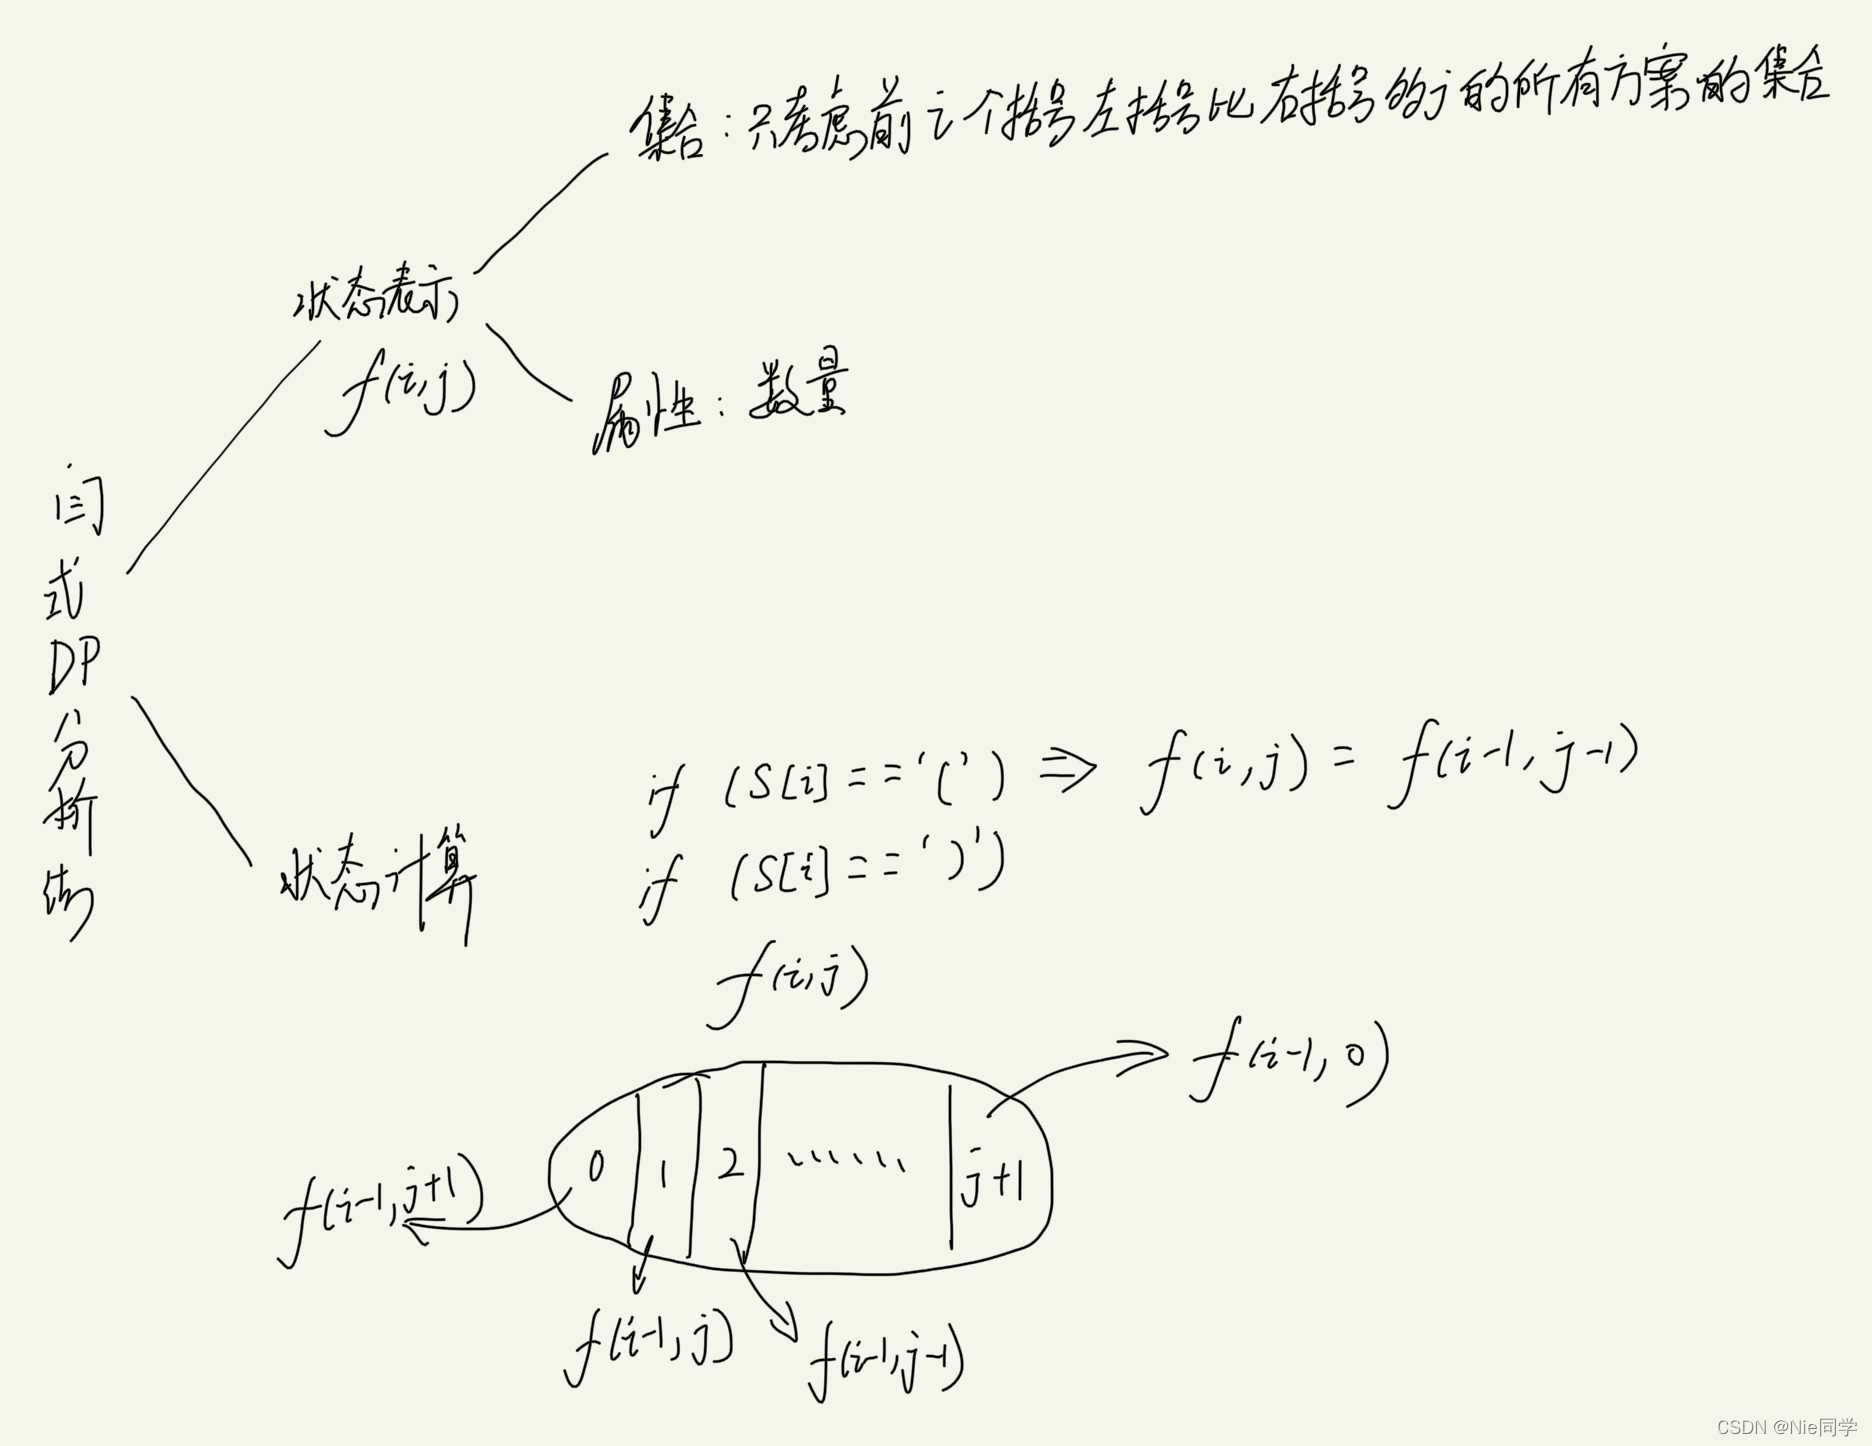 集合：只考虑前i个括号左括号比右括号多j的所有方案的集合
状态表示
f(i,j)
属性：数量
闫式DP分析法
if (S[i]=='(') ⇒ f(i,j) = f(i-1,j-1)
if (S[i]==')')
状态计算
f(i,j)
f(i-1,0)
0 1 2 ...... j+1
f(i-1,j+1)
f(i-1,j)
f(i-1,j-1)
CSDN @Nie同学